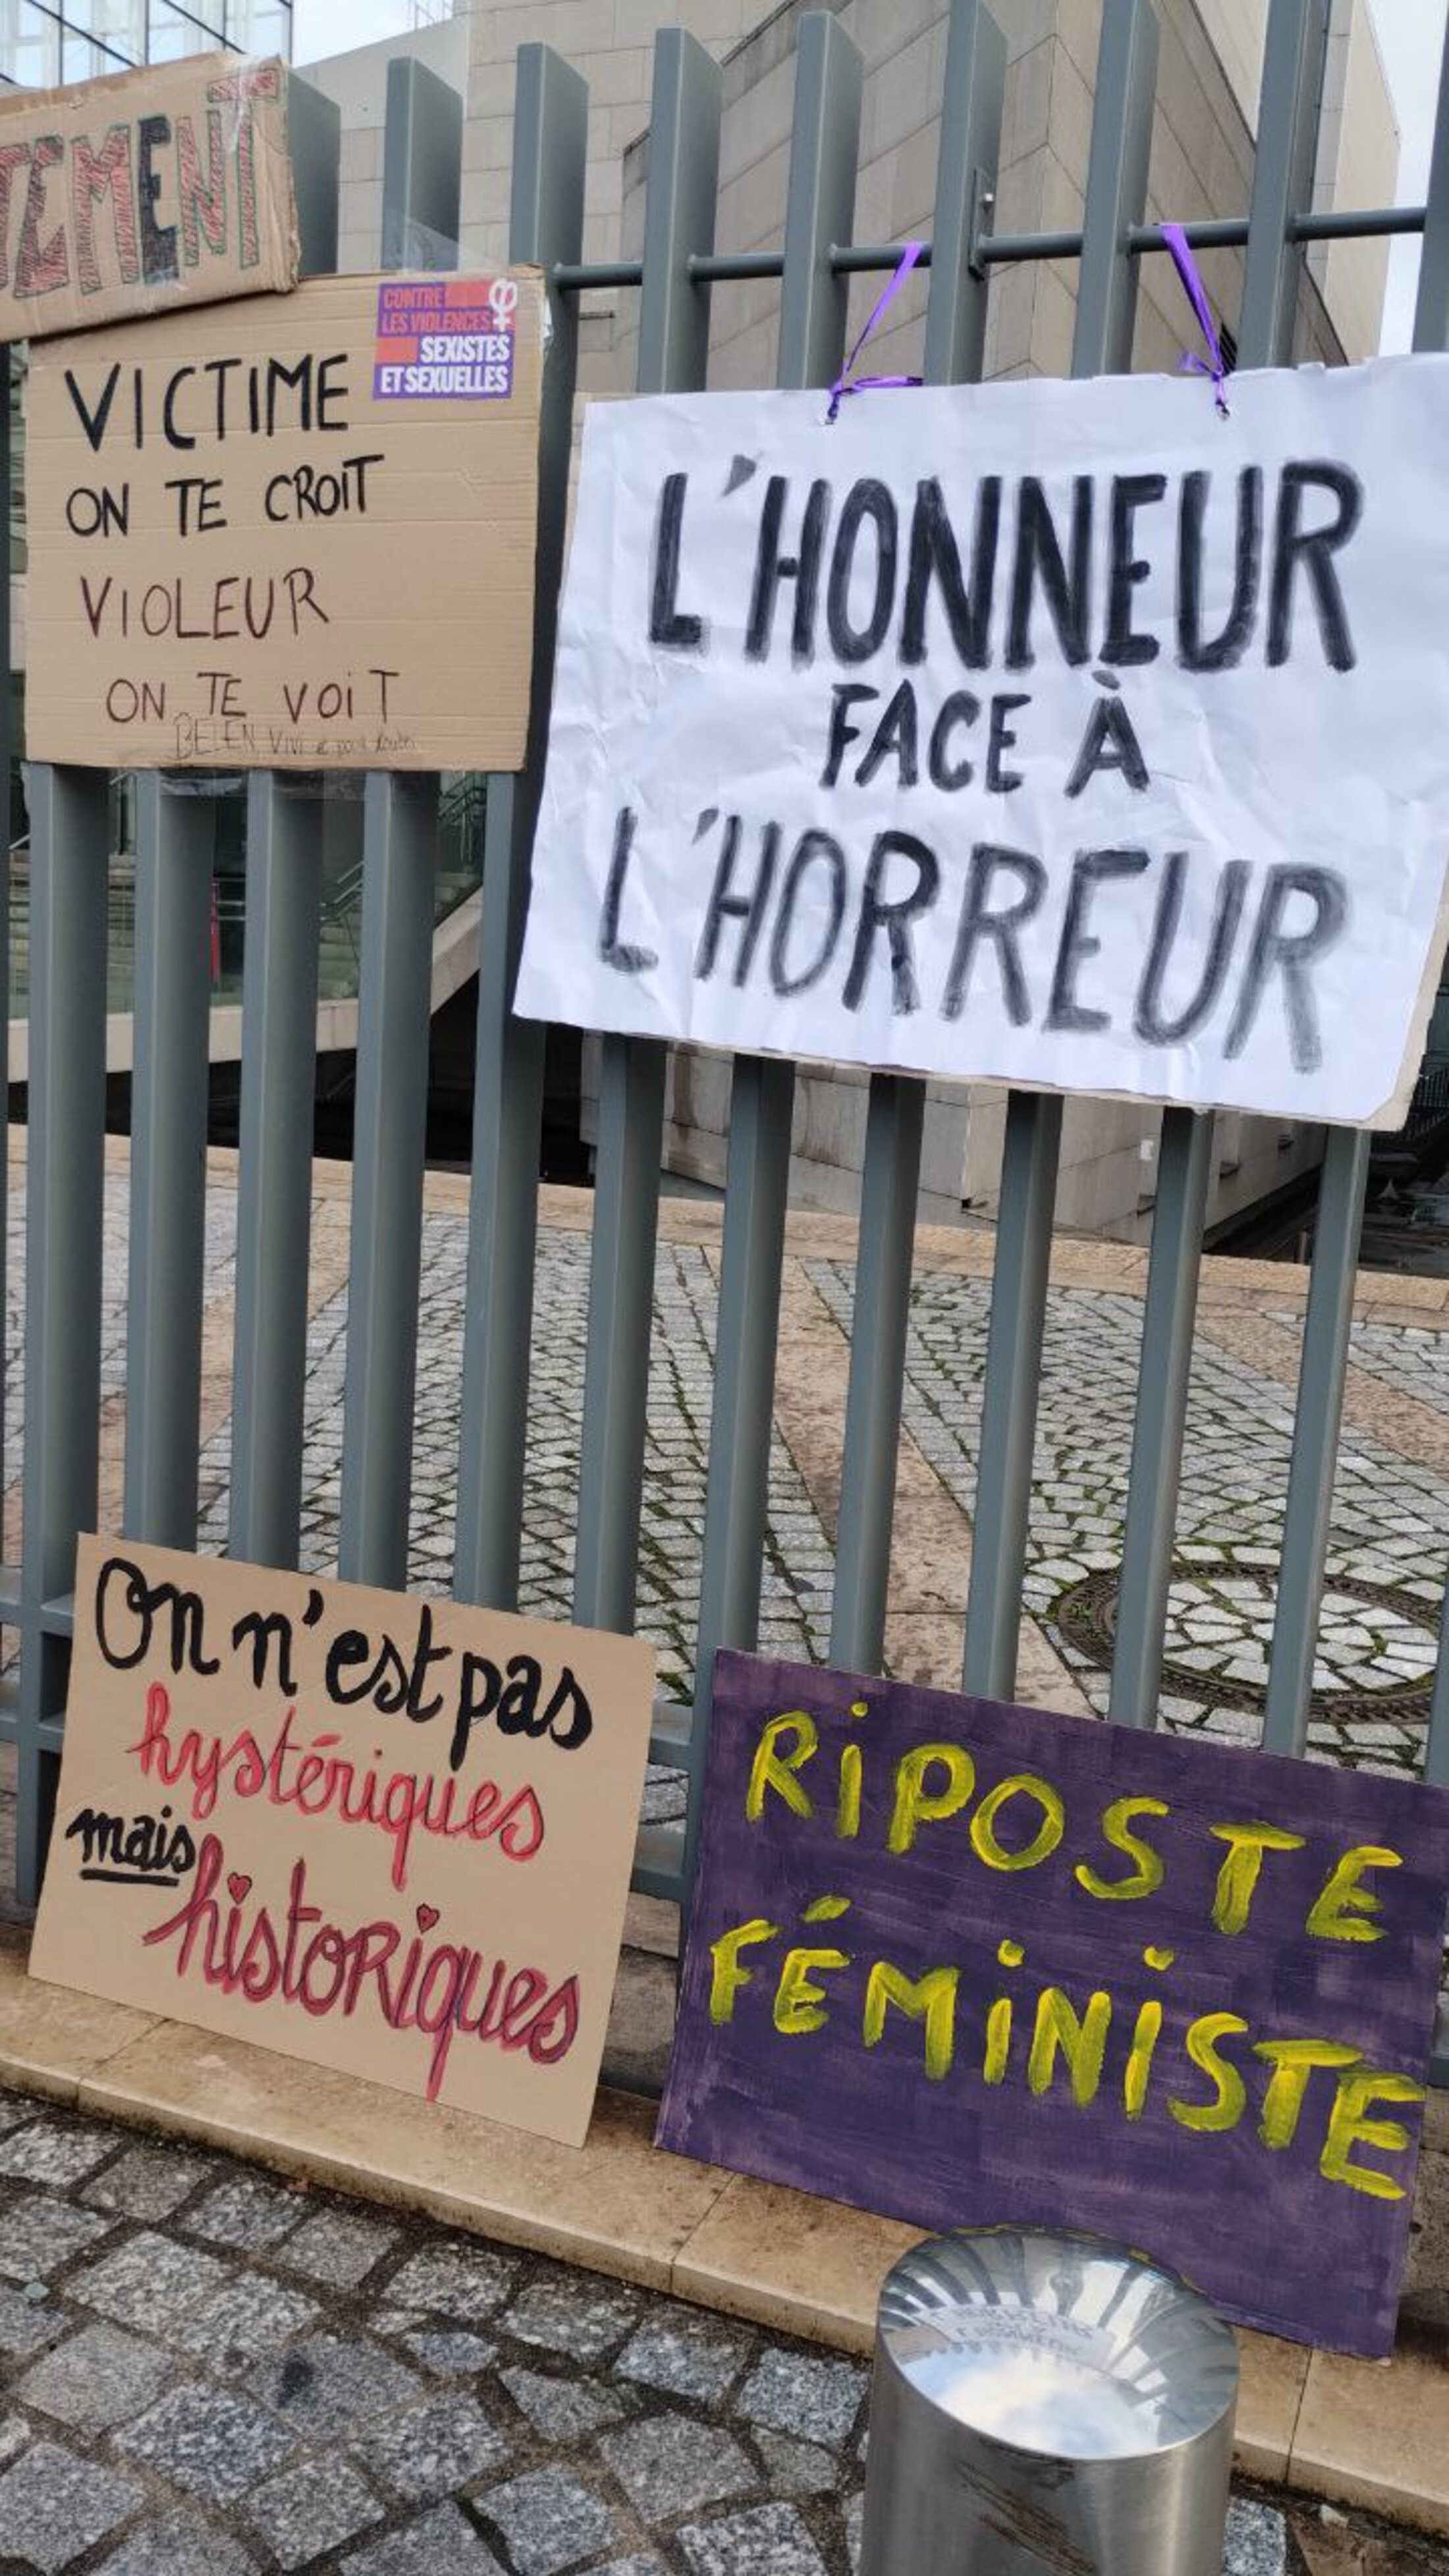 TEMENT
CONTRE
LES VIOLENCES
SEXISTES
ET SEXUELLES
VICTIME
ON TE CROIT
VIOLEUR
ON TE VOIT
BELEN
L'HONNEUR
FACE À
L'HORREUR
On n'est pas
hystériques
mais
historiques
RIPOSTE
FÉMINISTE